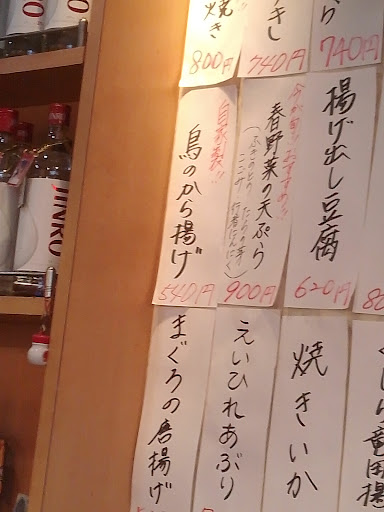 ら
740円
きし
740円
焼き
800円
揚げ出し豆腐
620円
今が旬!!おすすめ!!
春野菜の天ぷら
(ふきのとう たらの芽
こごみ 行者にんにく)
900円
自家製!!
鳥のから揚げ
540円
竜田揚
焼きいか
えいひれあぶり
まぐろの唐揚げ
JINRO